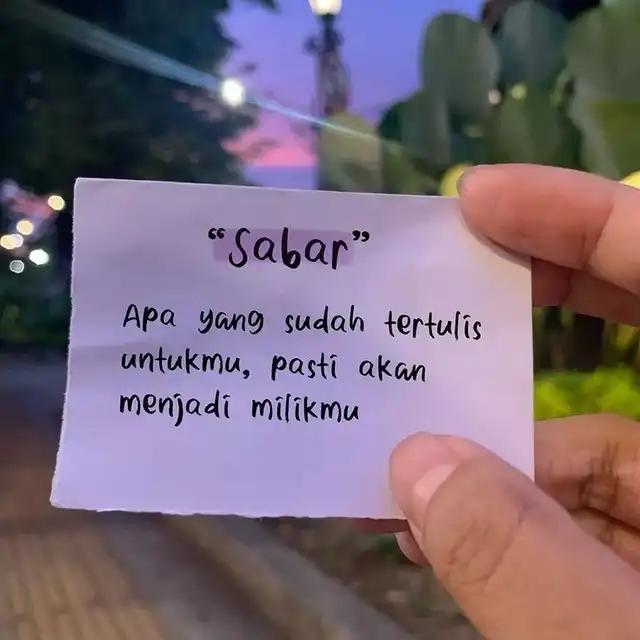 “Sabar”
Apa yang sudah tertulis
untukmu, pasti akan
menjadi milikmu